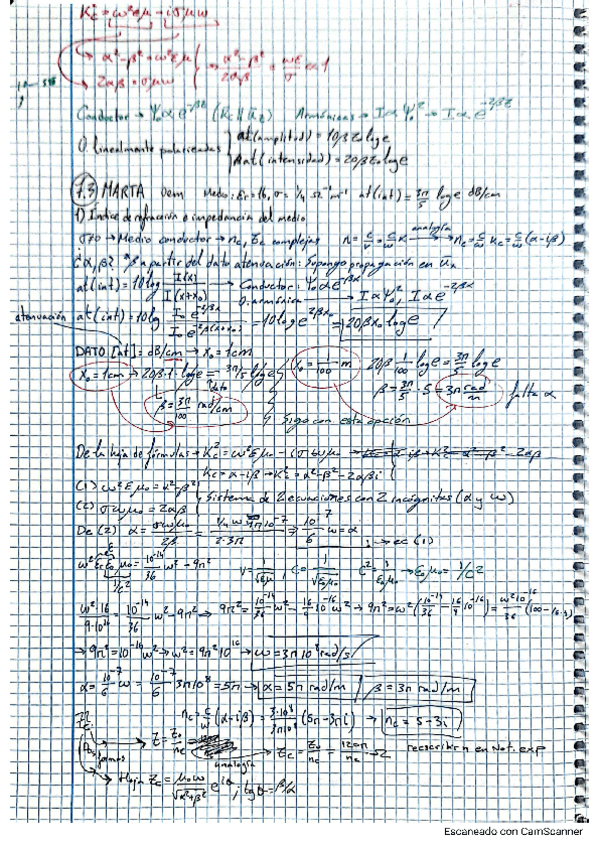 Kc² = ω²εμ - iσμω
α² - β² = ω²εμ
2αβ = σμω
⇒ α² - β² / 2αβ = ωε / σ
Conductor → Ψo α e^-βz (Kc || uz) Armónicas → I α Ψo² → I α e^-2βz
O. linealmente polarizadas
at (amplitud) = 10βzo log e
at (intensidad) = 20βzo log e
7.3 MARTA Medio: εr = 16, σ = 1/4 Ω⁻¹m⁻¹ at(int) = 3π/5 log e dB/cm
1) Índice de refracción o impedancia del medio
σ≠0 → Medio conductor → nc, Zc complejas n = c/v = c/ω K analogía → nc = c/ω kc = c/ω (α - iβ)
¿α, β? * β a partir del dato atenuación: Supongo propagación en ux
at(int) = 10 log I(x) / I(x+xo) → Conductor: Ψo α e^-βx
O. armónica → I α Ψo², I α e^-2βx
atenuación
at(int) = 10 log Io e^-2βx / Io e^-2β(x+xo) = 10 log e^2βxo = 20βxo log e
DATO [at] = dB/cm → xo = 1cm
xo = 1cm → 20β·1·log e = 3π/5 log e
dato
β = 3π/100 rad/cm
xo = 1/100 m 20β 1/100 log e = 3π/5 log e
β = 3π/5 · 5 = 3π rad/m falta α
Sigo con esta opción
De la hoja de fórmulas → Kc² = ω²εμo - iσωμo
kc = α - iβ → Kc² = α² - β² - 2αβi
(1) ω²εμo = α² - β²
(2) σωμo = 2αβ
Sistema de 2 ecuaciones con 2 incógnitas (α y ω)
De (2) α = σωμo / 2β = 1/4 ω 4π10⁻⁷ / 2·3π ⇒ 10⁻⁷/6 ω = α
→ ec (1)
ω² εr εo μo = 10⁻¹⁴/36 ω² - 9π²
1/c²
v = 1/√εμ, c = 1/√εoμo c² = 1/εoμo → εoμo = 1/c²
ω²·16 / 9·10¹⁶ = 10⁻¹⁴/36 ω² - 9π² → 9π² = 10⁻¹⁴/36 ω² - 16/9 10⁻¹⁶ ω² → 9π² = ω² (10⁻¹⁴/36 - 16/9 10⁻¹⁶) = ω²10⁻¹⁶/36 (100 - 16·4)
→ 9π² = 10⁻¹⁶ω² → ω² = 9π² 10¹⁶ → ω = 3π 10⁸ rad/s
α = 10⁻⁷/6 ω = 10⁻⁷/6 3π10⁸ = 5π → α = 5π rad/m β = 3π rad/m
nc = c/ω (α - iβ) = 3·10⁸ / 3π10⁸ (5π - 3πi) → nc = 5 - 3i
¿Zc?
Dos formas
Z = Zo/n
analogía → Zc = Zo/nc = 120π/nc Ω reescribir en Not. exp
Hoja Zc = μoω / √α²+β² e^iθ; tgθ = β/α
Escaneado con CamScanner